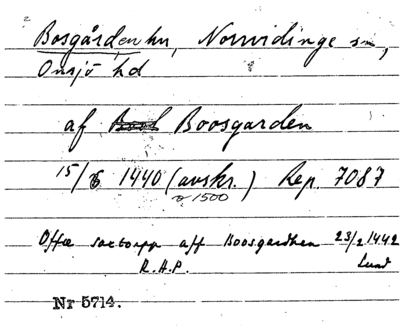 Bosgården hn, Norrvidinge sn,
Onsjö hd
af Boosgarden
15/6 1440 (avskr.) Rep. 7087
o 1500
Offue aff Boosgardhen 23/2 1442
R.A.P. Lund
Nr 5714.